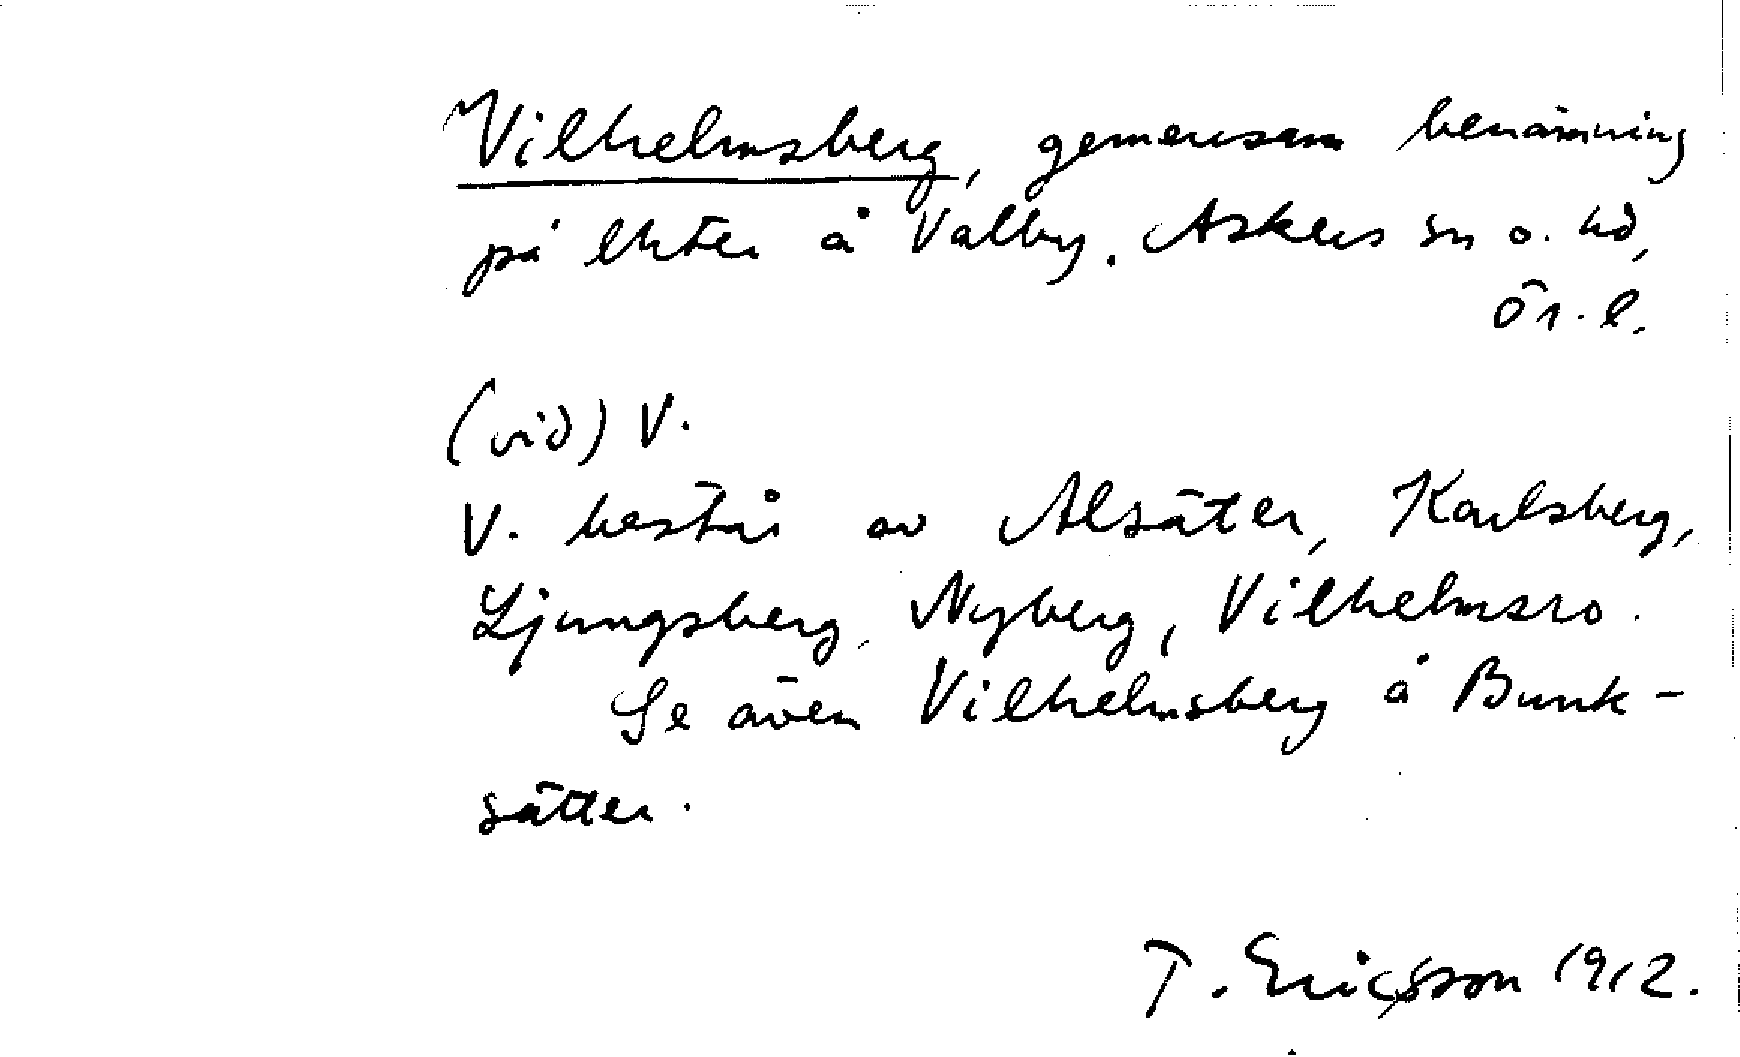 Vilhelmsberg, gemensam benämning
på lhter å Valby. Askers sn o. hd,
Ör. l.
(vid) V.
V. består av Alsäter, Karlsberg,
Ljungsberg, Nyberg, Vilhelmsro.
Se även Vilhelmsberg å Bunk-
sätter.
T. Ericsson 1912.